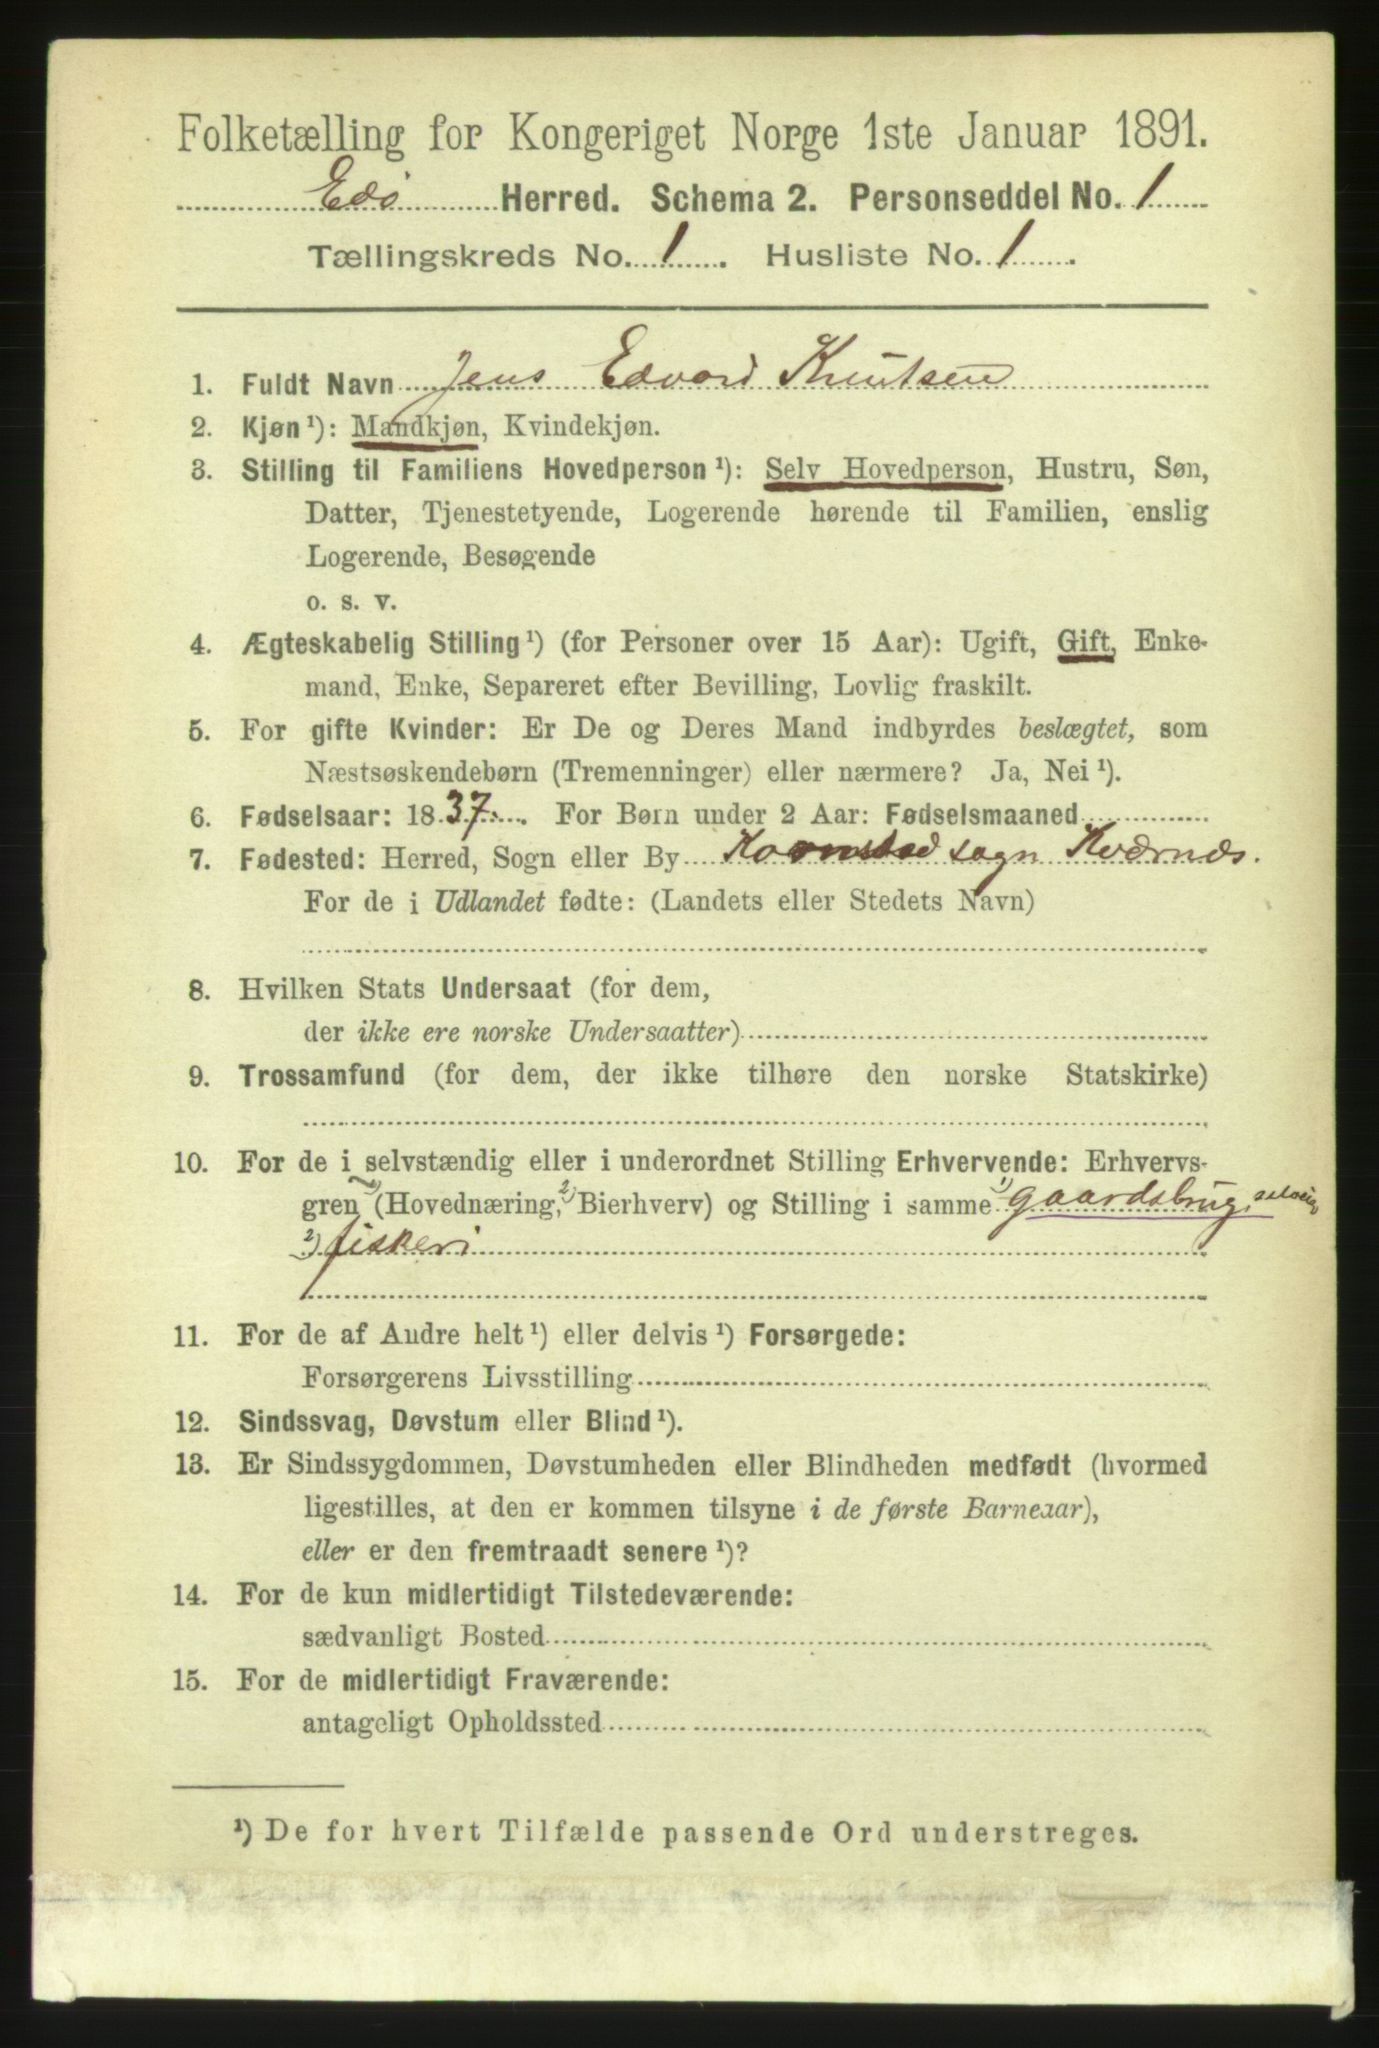 Folketælling for Kongeriget Norge 1ste Januar 1891.
Edø Herred. Schema 2. Personseddel No. 1
Tællingskreds No. 1. Husliste No. 1.
1. Fuldt Navn Jens Edvard Knutsen
2. Kjøn ¹): Mandkjøn, Kvindekjøn.
3. Stilling til Familiens Hovedperson ¹): Selv Hovedperson, Hustru, Søn,
Datter, Tjenestetyende, Logerende hørende til Familien, enslig
Logerende, Besøgende
o. s. v.
4. Ægteskabelig Stilling ¹) (for Personer over 15 Aar): Ugift, Gift, Enke-
mand, Enke, Separeret efter Bevilling, Lovlig fraskilt.
5. For gifte Kvinder: Er De og Deres Mand indbyrdes beslægtet, som
Næstsøskendebørn (Tremenninger) eller nærmere? Ja, Nei ¹).
6. Fødselsaar: 1837. For Børn under 2 Aar: Fødselsmaaned
7. Fødested: Herred, Sogn eller By Kornstad sogn Kværnæs.
For de i Udlandet fødte: (Landets eller Stedets Navn)
8. Hvilken Stats Undersaat (for dem,
der ikke ere norske Undersaatter)
9. Trossamfund (for dem, der ikke tilhøre den norske Statskirke)
10. For de i selvstændig eller i underordnet Stilling Erhvervende: Erhvervs-
gren ¹) (Hovednæring, ²) Bierhverv) og Stilling i samme ¹) gaardsbrug, selveier
²) fiskeri
11. For de af Andre helt ¹) eller delvis ¹) Forsørgede:
Forsørgerens Livsstilling
12. Sindssvag, Døvstum eller Blind ¹).
13. Er Sindssygdommen, Døvstumheden eller Blindheden medfødt (hvormed
ligestilles, at den er kommen tilsyne i de første Barneaar),
eller er den fremtraadt senere ¹)?
14. For de kun midlertidigt Tilstedeværende:
sædvanligt Bosted
15. For de midlertidigt Fraværende:
antageligt Opholdssted
¹) De for hvert Tilfælde passende Ord understreges.